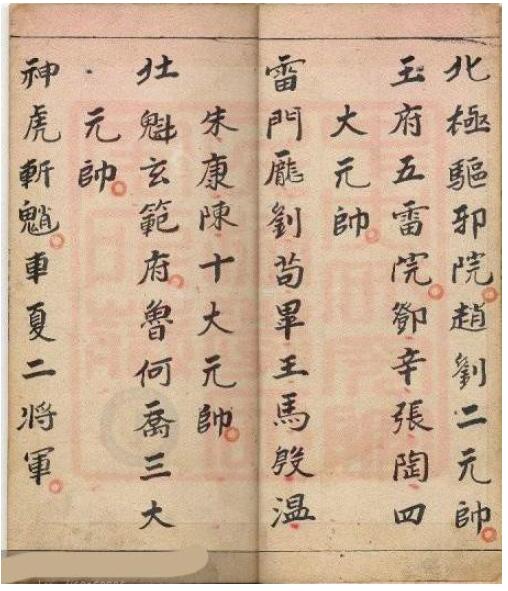 北極驅邪院趙劉二元帥
玉府五雷院鄧辛張陶四
大元帥
雷門龐劉苟畢王馬殷溫
朱康陳十大元帥
壯魁玄範府魯何喬三大
元帥
神虎斬魈車夏二將軍